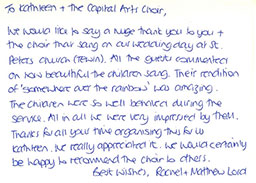 To Kathleen + The Capital Arts Choir,
We would like to say a huge thank you to you +
the choir that sang on our wedding day at St.
Peters church (Tewin). All the guests commented
on how beautiful the children sang. Their rendition
of 'somewhere over the rainbow' was amazing.
The children were so well behaved during the
service. All in all we were very impressed by them.
Thanks for all your time organising this for us
Kathleen. We really appreciated it. We would certainly
be happy to recommend the choir to others.
Best wishes, Rachel + Matthew Lord